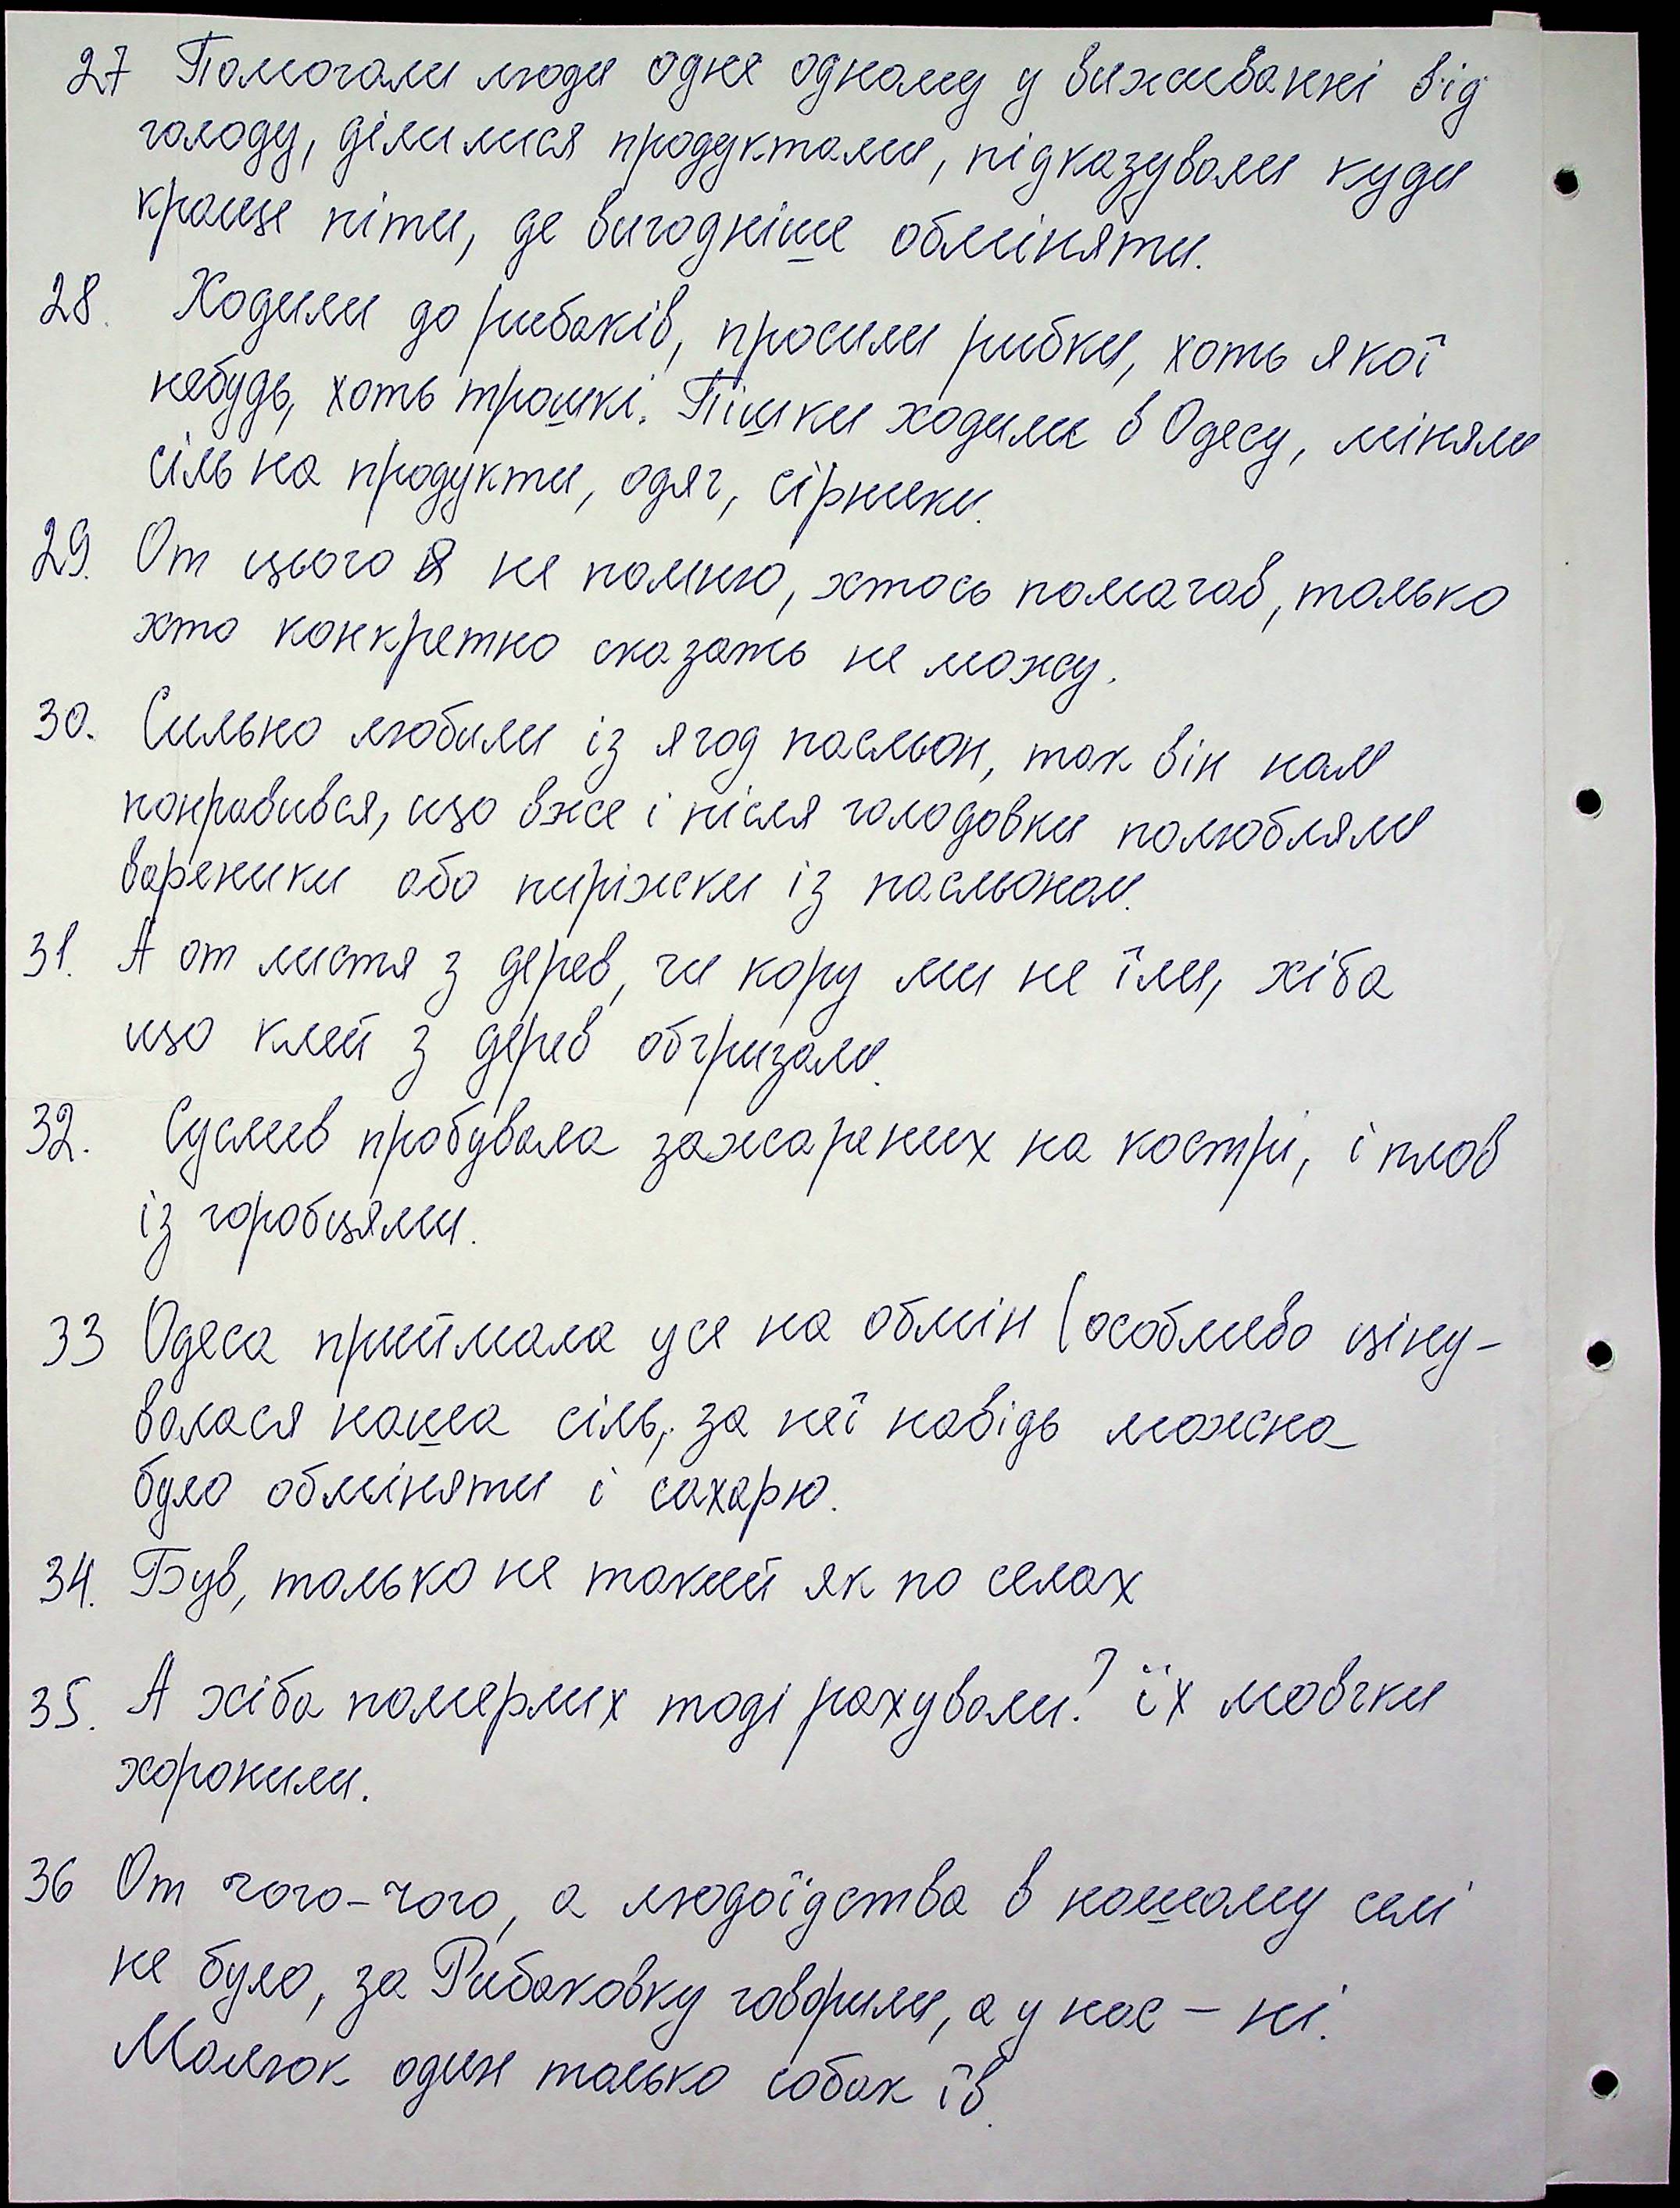 27 Помогали люди одне одному у виживанні від
голоду, ділилися продуктами, підказували куди
краще піти, де вигодніше обміняти.
28. Ходили до рибаків, просили рибки, хоть якої
небудь, хоть трошкі. Пішки ходили в Одесу, міняли
сіль на продукти, одяг, сірники.
29. От цього я не помню, хтось помагав, только
хто конкретно сказать не можу.
30. Сильно любили із ягод пасльон, так він нам
понравився, що вже і після голодовки полюбляли
вареники або пиріжки із пасльоном.
31. А от листя з дерев, чи кору ми не їли, хіба
що клей з дерев обгризали.
32. Суслив пробувала зажарених на кострі, і плов
із горобцями.
33 Одеса приймала усе на обмін (особливо ціну-
валася наша сіль, за неї навідь можна
було обміняти і сахарю.
34. Був, только не такий як по селах
35. А хіба померлих тоді рахували? їх мовчки
хоронили.
36 От чого-чого, а людоїдства в нашому селі
не було, за Рибаковку говорили, а у нас – ні.
Малюк один только собак їв.